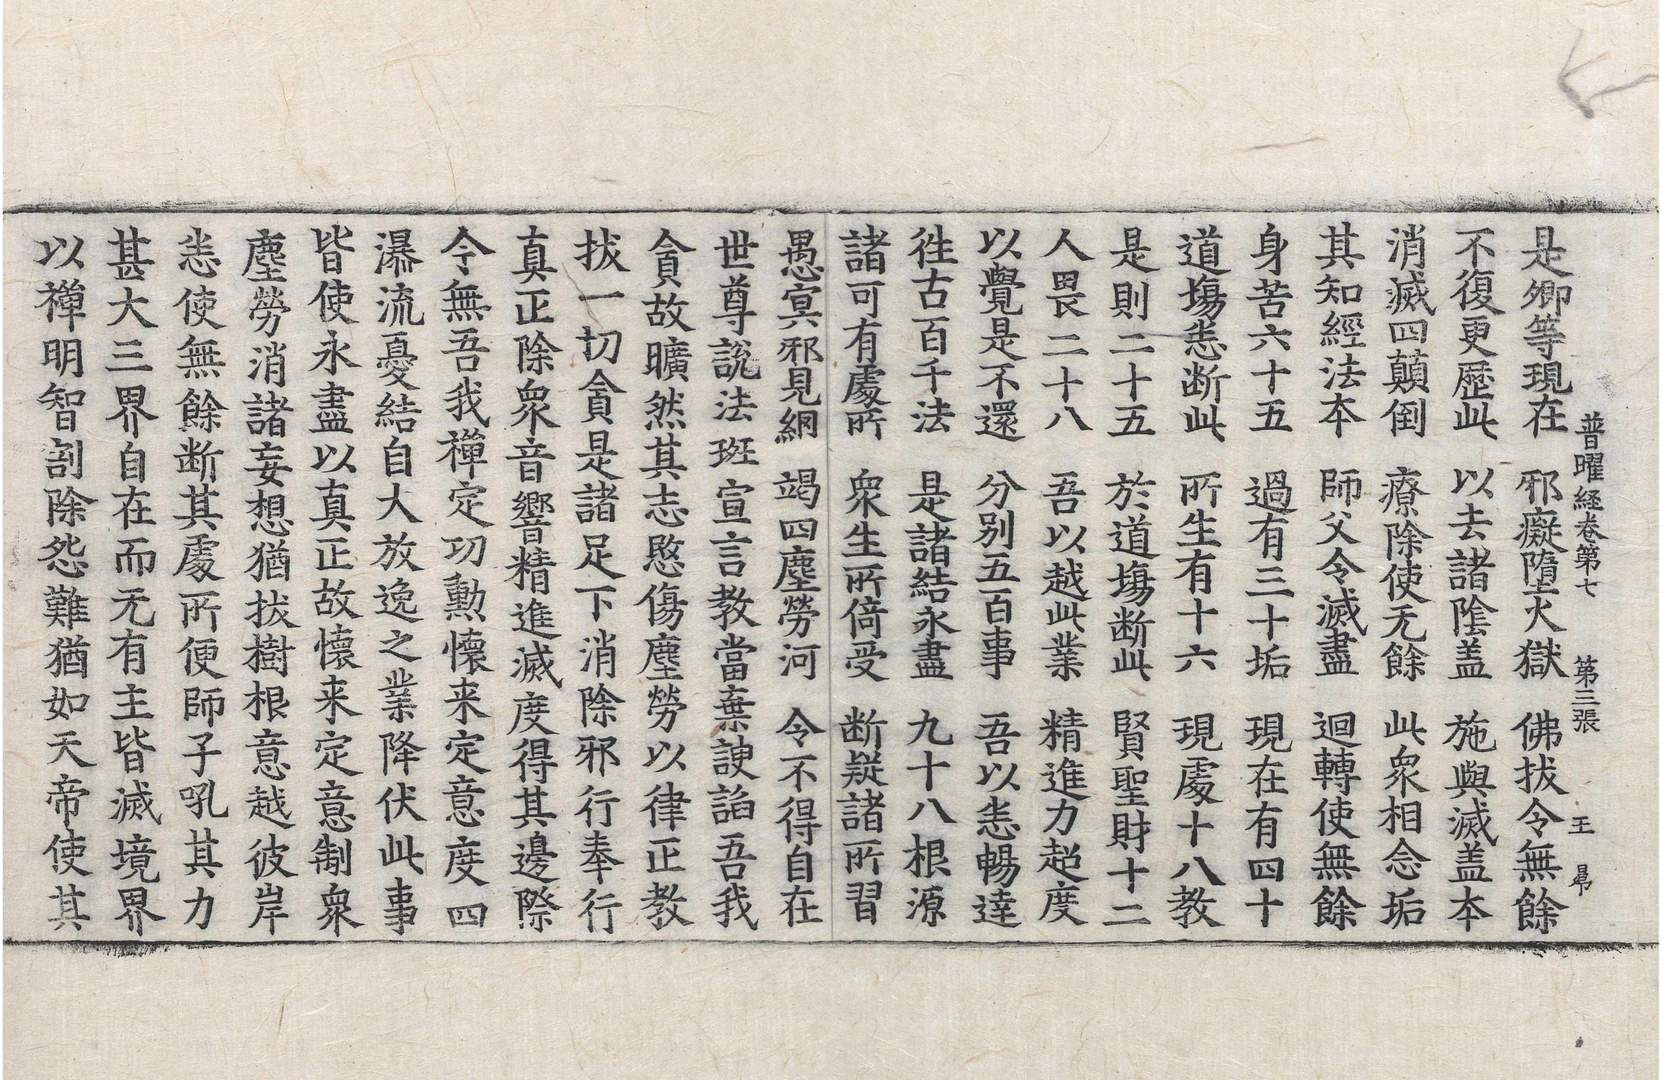 普曜経卷第七 第三張 王
是卿等現在 邪癡墮火獄 佛拔令無餘
不復更歷此 以去諸陰盖 施與滅盖本
消滅四顛倒 療除使无餘 此衆相念垢
其知經法本 師父令滅盡 迴轉使無餘
身苦六十五 過有三十垢 現在有四十
道塲悉断此 所生有十六 現處十八教
是則二十五 於道塲断此 賢聖財十二
人畏二十八 吾以越此業 精進力超度
以覺是不還 分别五百事 吾以悉暢達
徃古百千法 是諸結永盡 九十八根源
諸可有處所 衆生所倚受 断疑諸所習
愚冥邪見網 竭四塵勞河 令不得自在
世尊說法班宣言教當棄諛諂吾我
貪故曠然其志愍傷塵勞以律正教
拔一切貪是諸足下消除邪行奉行
真正除衆音響精進滅度得其邊際
令無吾我禪定功勳懷来定意度四
瀑流憂結自大放逸之業降伏此事
皆使永盡以真正故懷来定意制衆
塵勞消諸妄想猶拔樹根意越彼岸
悉使無餘断其處所便師子吼其力
甚大三界自在而无有主皆滅境界
以禪明智割除怨難猶如天帝使其